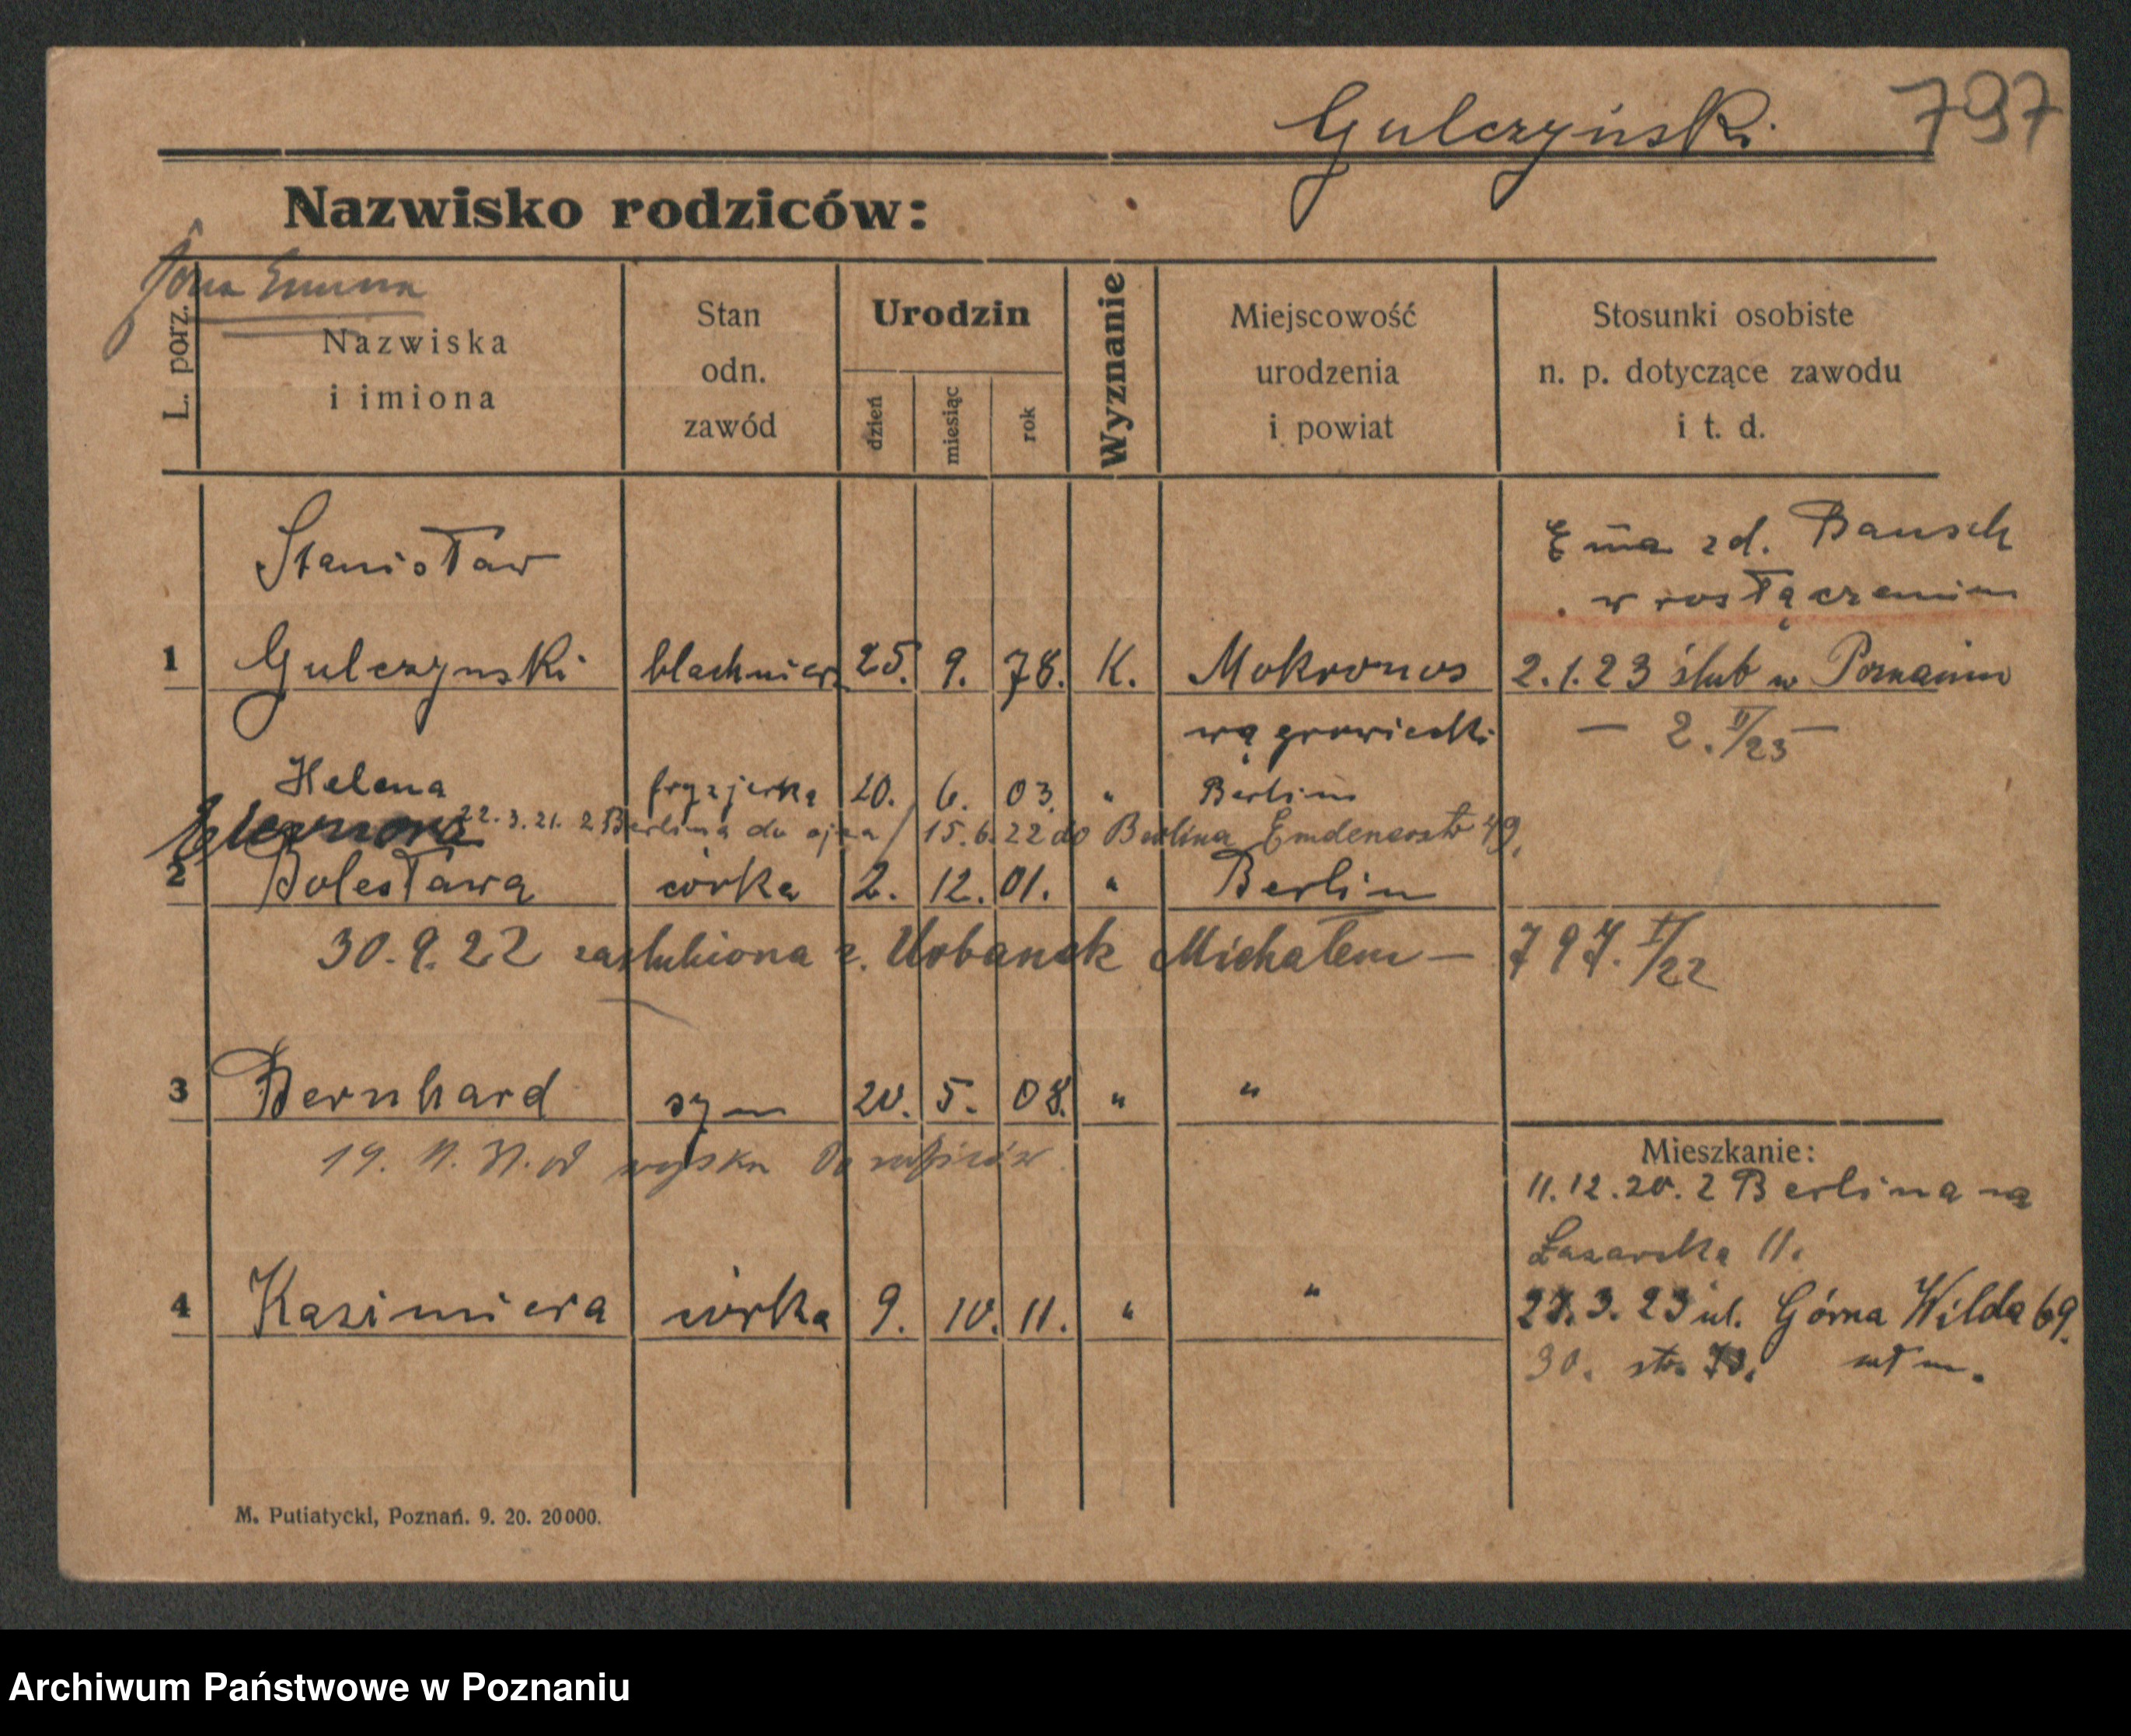 Gulczyński 797
Nazwisko rodziców:
żona Emma
L. porz.
Nazwiska
i imiona
Stan
odn.
zawód
Urodzin
dzień
miesiąc
rok
Wyznanie
Miejscowość
urodzenia
i powiat
Stosunki osobiste
n. p. dotyczące zawodu
i t. d.
Stanisław
Em̄a zd. Bausch
w rosłączeniu
1 Gulczynski blachnierz 25. 9. 78. K. Mokronos 2.1.23 ślub w Poznaniu
wągrowiecki — 2. II/23 —
Helena fryzjerka 20. 6. 03. " Berlin
22.3.21. z Berlina do ojca / 15.6.22 do Berlina Emdenerstr 49.
2 Bolesława córka 2. 12. 01. " Berlin
30.9.22 zaślubiona z. Urbanek Michałem — 797. I/22
3 Bernhard syn 20. 5. 08. " "
19. 11. 31. od wojska
Mieszkanie:
11.12.20. z Berlina na
Łazarska 11.
4 Kazimiera córka 9. 10. 11. " "
27.3.23 ul. Górna Wilda 69.
30. str.
M. Putiatycki, Poznań. 9. 20. 20000.
Archiwum Państwowe w Poznaniu